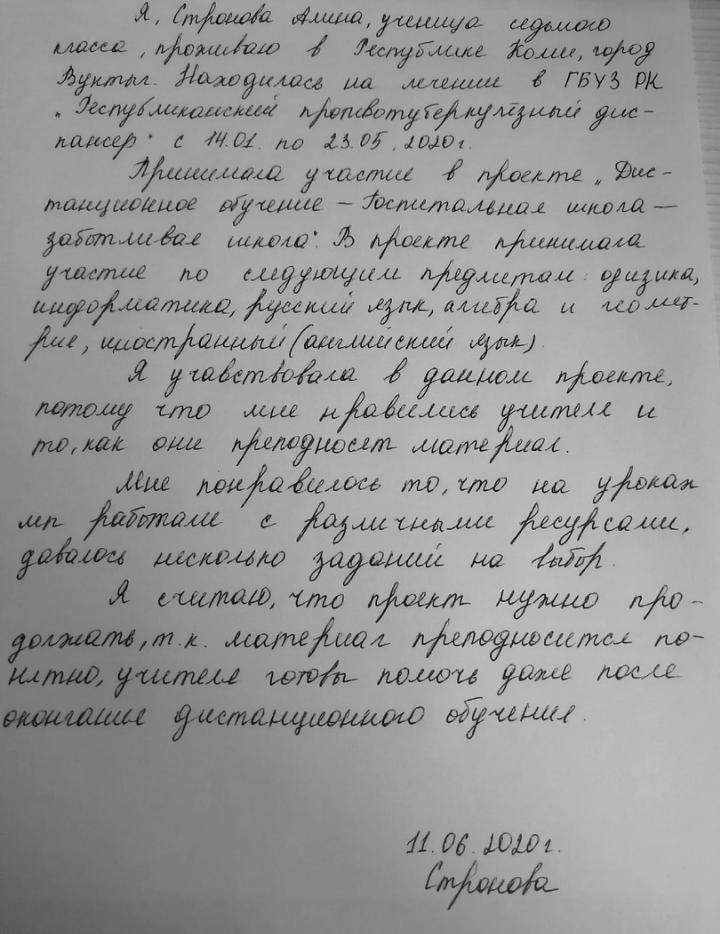 Я, Стронова Алина, ученица седьмого
класса, проживаю в Республике Коми, город
Вуктыл. Находилась на лечении в ГБУЗ РК
„Республиканский противотуберкулёзный дис-
пансер" с 14.01. по 23.05.2020г.
Принимала участие в проекте „Дис-
танционное обучение – Госпитальная школа –
заботливая школа". В проекте принимала
участие по следующим предметам: физика,
информатика, русский язык, алгебра и геомет-
рия, иностранный (английский язык).
Я учавствовала в данном проекте,
потому что мне нравились учителя и
то, как они преподносят материал.
Мне понравилось то, что на уроках
мы работали с различными ресурсами,
давалось несколько заданий на выбор.
Я считаю, что проект нужно про-
должать, т.к. материал преподносится по-
нятно, учителя готовы помочь даже после
окончания дистанционного обучения.
11.06.2020г.
Стронова